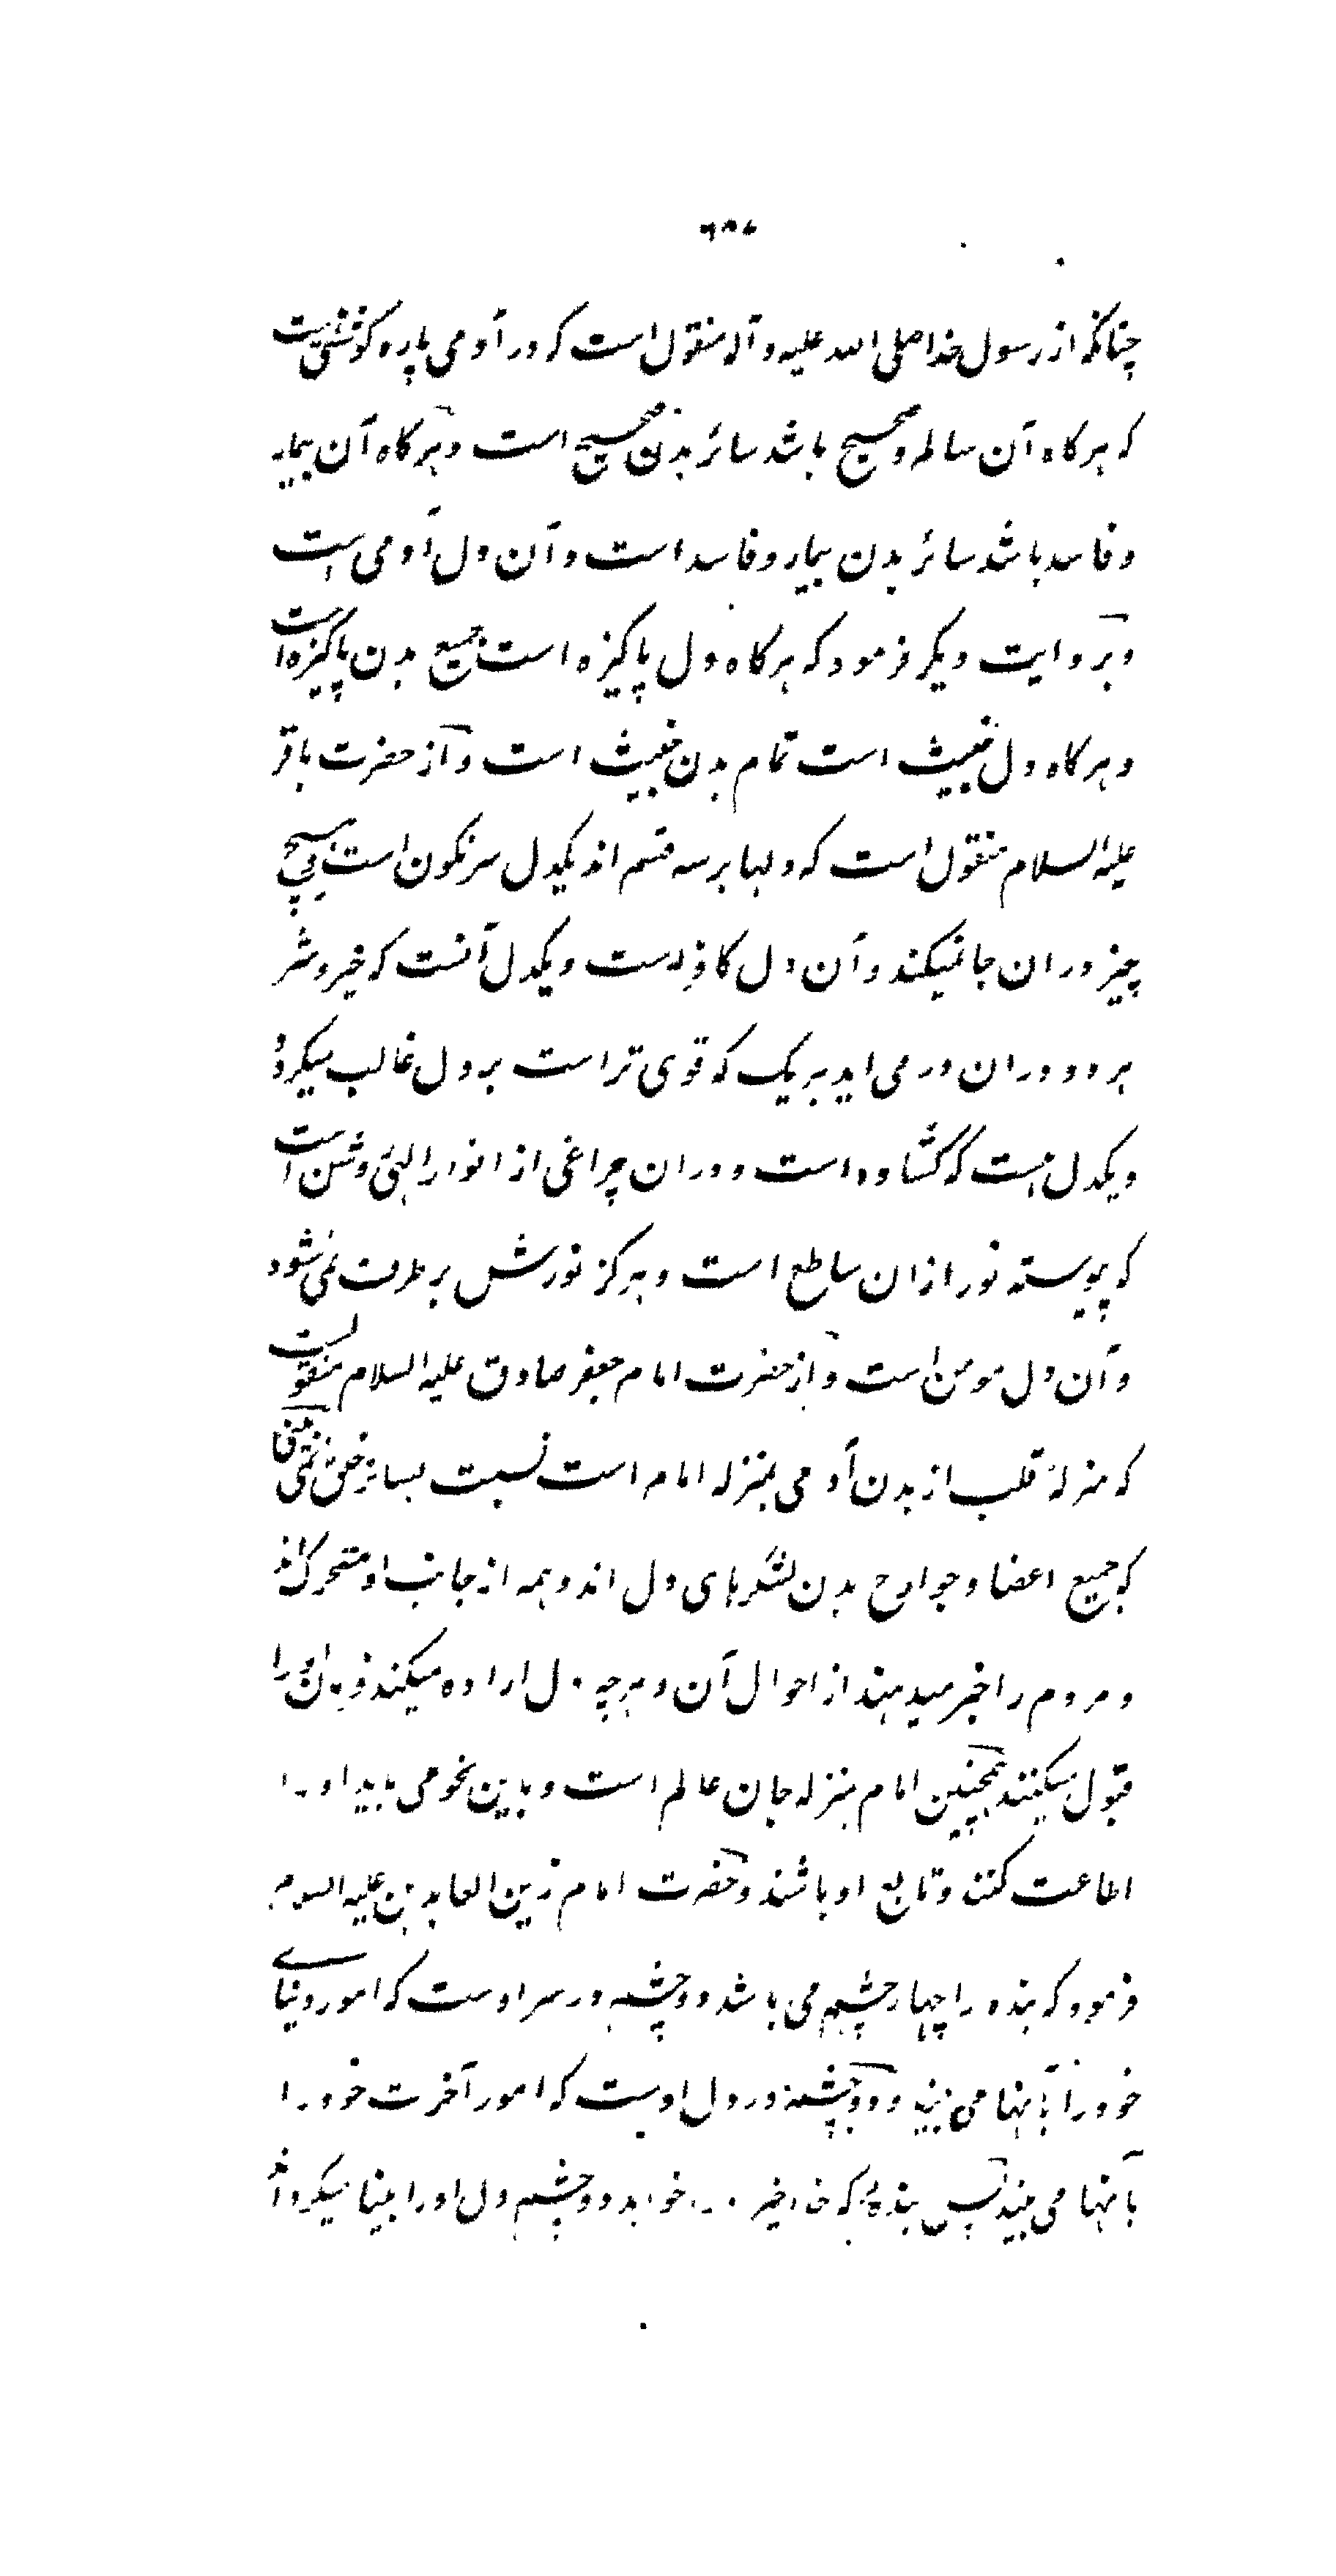 چنانکه از رسول خدا صلی الله علیه و آله منقول است که در آدمی پاره گوشتیست
که هرگاه آن سالم و صحیح باشد سائر بدن صحیح است و هرگاه آن بیمار
و فاسد باشد سائر بدن بیمار و فاسد است و آن دل آدمی است
و بروایت دیگر فرمود که هرگاه دل پاکیزه است جمیع بدن پاکیزه است
و هرگاه دل خبیث است تمام بدن خبیث است و از حضرت باقر
علیه السلام منقول است که دلها بر سه قسم اند یکدل سرنگون است که هیچ
چیز در ان جا نمیکند و آن دل کافر است و یکدل آنست که خیر و شر
هر دو در ان در می اید هر یک که قوی تر است بر دل غالب میگردد
و یکدل هست که گشاده است و در ان چراغی از انوار الهی روشن است
که پیوسته نور از ان ساطع است و هرگز نورش برطرف نمی شود
و آن دل مومن است و از حضرت امام جعفر صادق علیه السلام منقولست
که منزلهٔ قلب از بدن آدمی بمنزله امام است نسبت بسائر خلق نمی بینی
که جمیع اعضا و جوارح بدن لشکرهای دل اند و همه از جانب او متحرک اند
و مردم را خبر میدهند از احوال آن و هرچه دل اراده میکند فرمان او را
قبول میکنند همچنین امام بمنزله جان عالم است و باین نحو می باید او را
اطاعت کنند و تابع او باشند و حضرت امام زین العابدین علیه السلام
فرمود که بنده را چهار چشم می باشد دو چشم در سر اوست که امور دنیای
خود را بآنها می بیند و دو چشم در دل اوست که امور آخرت خود را
بآنها می بیند پس بندهٔ که خدا خیر خواهد دو چشم دل او را بینا میگرداند